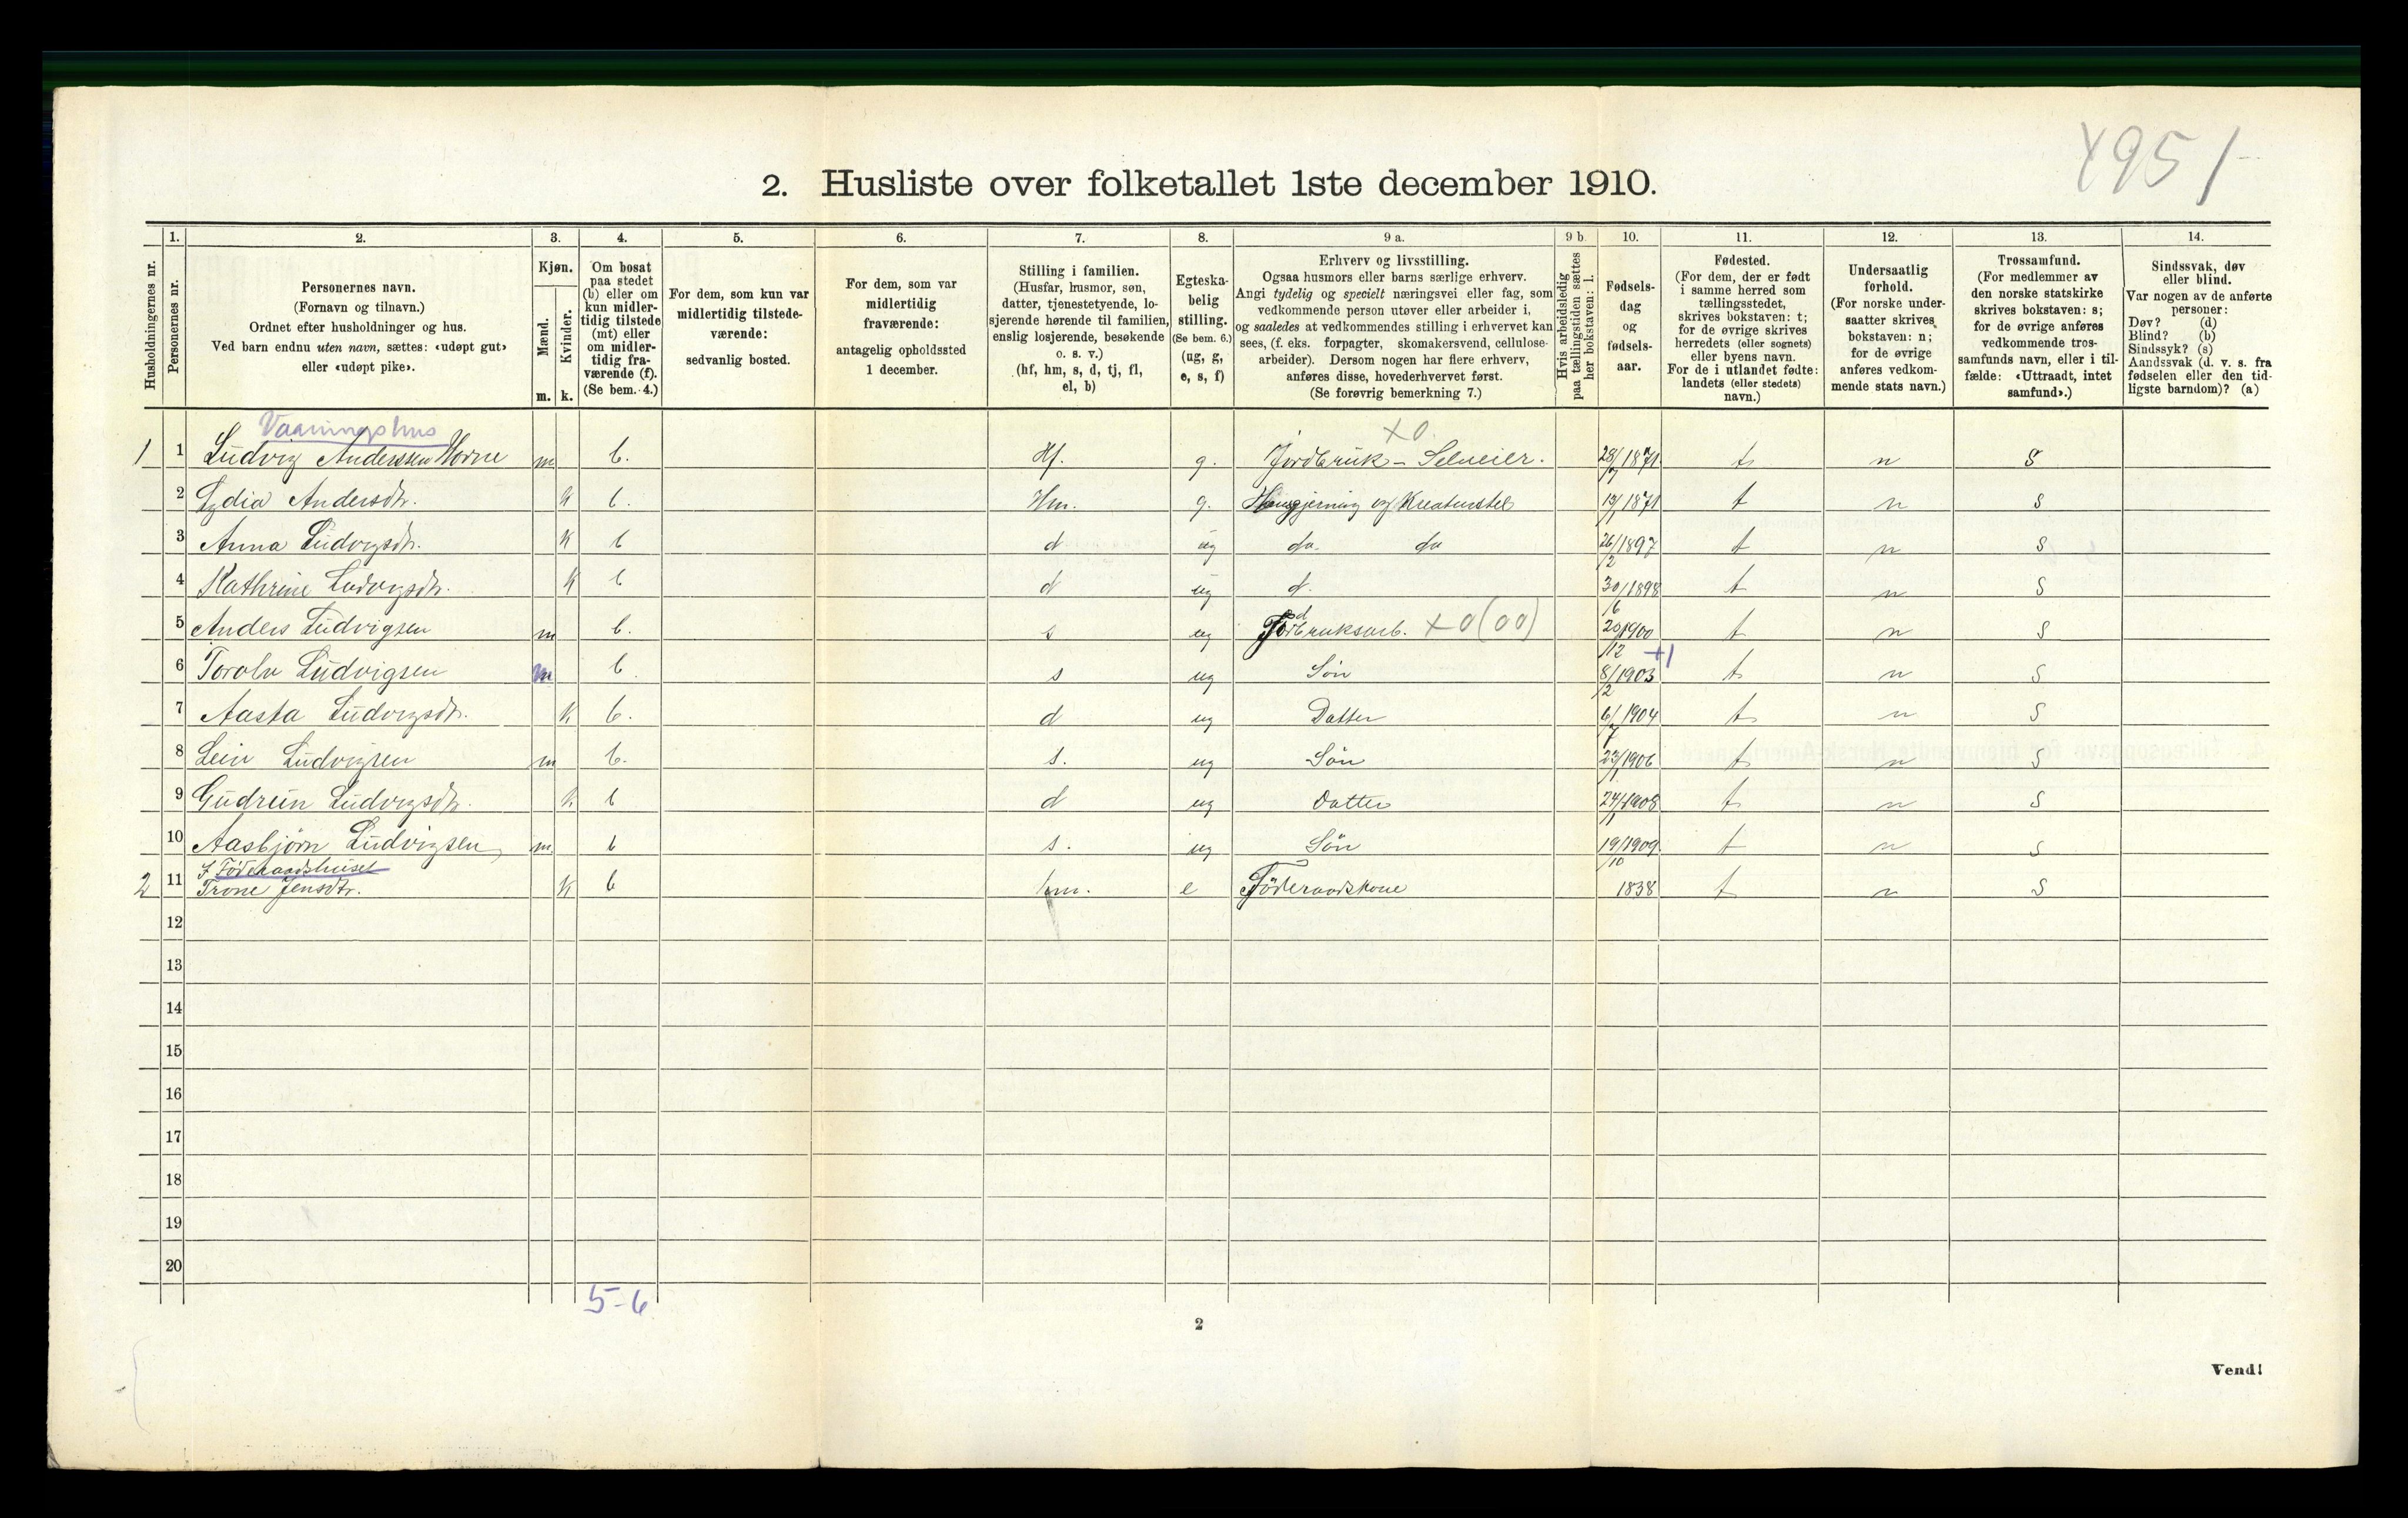 4951
2. Husliste over folketallet 1ste december 1910.
1. 2. 3. 4. 5. 6. 7. 8. 9 a. 9 b. 10. 11. 12. 13. 14.
Husholdningernes nr.
Personernes nr.
Personernes navn.
(Fornavn og tilnavn.)
Ordnet efter husholdninger og hus.
Ved barn endnu uten navn, sættes: «udøpt gut»
eller «udøpt pike».
Kjøn.
Mænd.
Kvinder.
m. k.
Om bosat
paa stedet
(b) eller om
kun midler-
tidig tilstede
(mt) eller
om midler-
tidig fra-
værende (f).
(Se bem. 4.)
For dem, som kun var
midlertidig tilstede-
værende:
sedvanlig bosted.
For dem, som var
midlertidig
fraværende:
antagelig opholdssted
1 december.
Stilling i familien.
(Husfar, husmor, søn,
datter, tjenestetyende, lo-
sjerende hørende til familien,
enslig losjerende, besøkende
o. s. v.)
(hf, hm, s, d, tj, fl,
el, b)
Egteska-
belig
stilling.
(Se bem. 6.)
(ug, g,
e, s, f)
Erhverv og livsstilling.
Ogsaa husmors eller barns særlige erhverv.
Angi tydelig og specielt næringsvei eller fag, som
vedkommende person utøver eller arbeider i,
og saaledes at vedkommendes stilling i erhvervet kan
sees, (f. eks. forpagter, skomakersvend, cellulose-
arbeider). Dersom nogen har flere erhverv,
anføres disse, hovederhvervet først.
(Se forøvrig bemerkning 7.)
Hvis arbeidsledig
paa tællingstiden sættes
her bokstaven: l.
Fødsels-
dag
og
fødsels-
aar.
Fødested.
(For dem, der er født
i samme herred som
tællingsstedet,
skrives bokstaven: t;
for de øvrige skrives
herredets (eller sognets)
eller byens navn.
For de i utlandet fødte:
landets (eller stedets)
navn.)
Undersaatlig
forhold.
(For norske under-
saatter skrives
bokstaven: n;
for de øvrige
anføres vedkom-
mende stats navn.)
Trossamfund.
(For medlemmer av
den norske statskirke
skrives bokstaven: s;
for de øvrige anføres
vedkommende tros-
samfunds navn, eller i til-
fælde: «Uttraadt, intet
samfund».)
Sindssvak, døv
eller blind.
Var nogen av de anførte
personer:
Døv? (d)
Blind? (b)
Sindssyk? (s)
Aandssvak (d. v. s. fra
fødselen eller den tid-
ligste barndom)? (a)
Vaaningshus x0.
1 1 Ludvig Anderssen Horne m b. Hf. g. Jordbruk - Selveier. 28/7 1871 t n S
2 Lydia Andersdtr. k b. Hm. g. Husgjerning og Kreaturstel 1871 t n S
3 Anna Ludvigsdtr. k b d ug do. do 26/2 1897 t n S
4 Kathrine Ludvigsdtr. k b d ug d. 30/6 1898 t n S
5 Anders Ludvigsen m b. s ug Jordbruksarb. x0 (00) 20/12 1900 t n S
+1
6 Toralv Ludvigsen m b. s ug Søn 8/2 1903 t n S
7 Aasta Ludvigsdtr. k b. d ug Datter 6/7 1904 t n S
8 Leiv Ludvigsen m b. s. ug Søn 23/1 1906 t n S
9 Gudrun Ludvigsdtr. k b d ug Datter 24/1 1908 t n S
10 Aasbjørn Ludvigsen m b s. ug Søn 19/10 1909 t n S
I Føderaadshuset
2 11 Trone Jensdtr. k b hm. e Føderaadskone 1838 t n S
12
13
14
15
16
17
18
19
20
5-6
2
Vend!